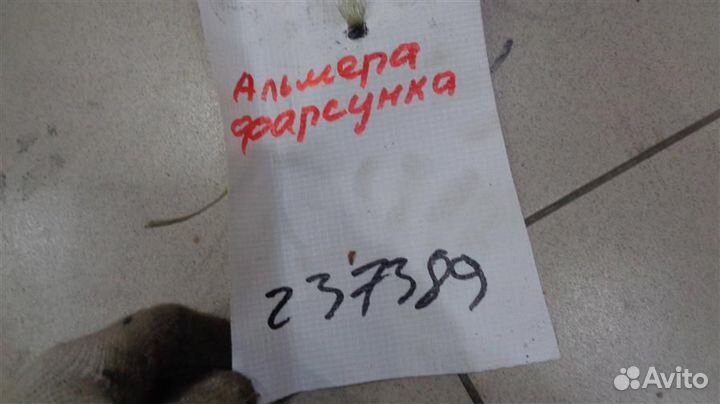 Альмера
фарсунка
237389
Avito